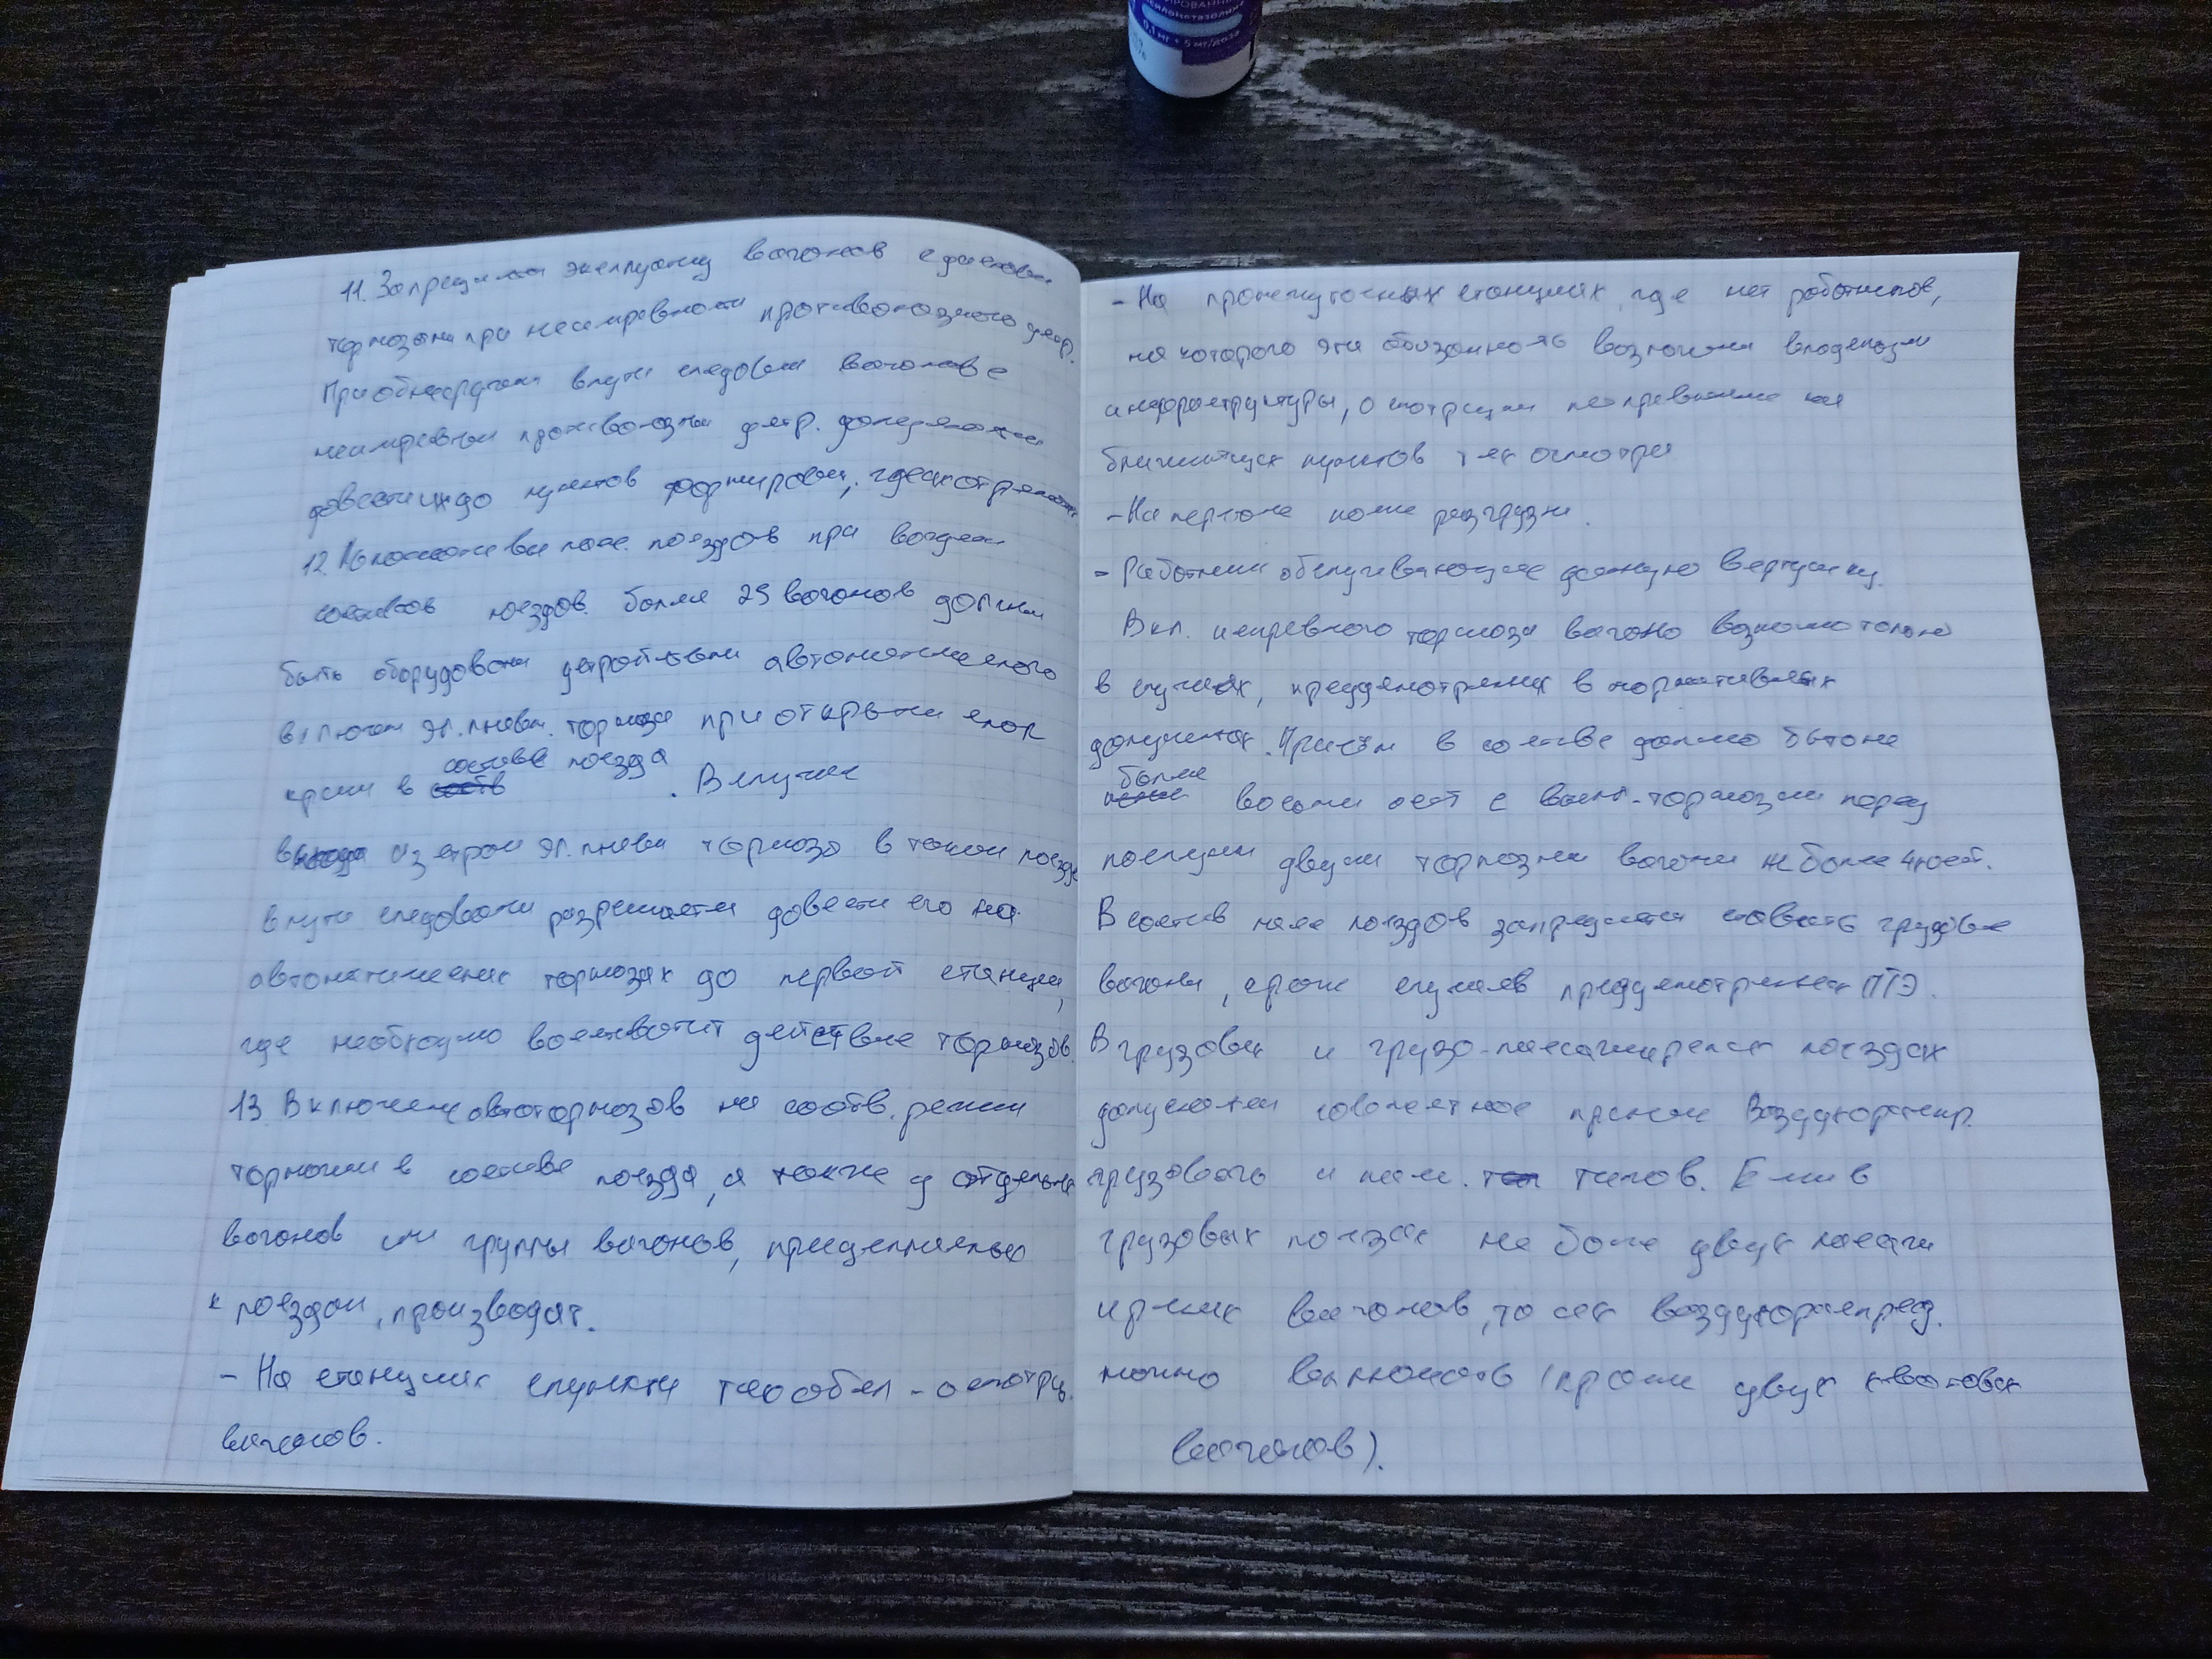 0,1 мг + 5 мг/доза
11. Запрещена эксплуатац вагонов с дисковы
тормозами при неисправности противоюзного устр.
При обнаружен в пути следован вагонов с
неисправным противоюзным устр. допускается
довести их до пунктов формирован, где
12. пасс. поездов при
составов поездов более 25 вагонов должны
быть оборудованы устройствами автоматического
включен эл. пневм. тормоза при открытии стоп
крана в составе поезда. В случае
выхода из строя эл. пневм тормоза в таком поезде
в пути следования разрешается довести его на
автоматических тормозах до первой станции,
где необходимо восстановит действие тормозов.
13. Включение автотормозов на соотв. режим
торможен в составе поезда, а также у отдельных
вагонов или группы вагонов, прицепляемых
к поездам, производят.
- На станциях с пунктами тех обсл - осмотрщ.
вагонов.
- На промежуточных станциях, где нет работников,
на которого эта обязанность возложена владельцем
инфраструктуры, осмотрщики направленные на
ближайших пунктов тех осмотра
- На перегоне после разгрузки.
- Работники обслуживающие данную вертушку.
Вкл. исправного тормоза вагона возможно только
в случаях, предусмотренных в нормативных
документах. Причём в составе должно быть не
более восьми осей с выкл-тормозами перед
последними двумя тормозными вагонами не более 4 осей.
В состав пасс поездов запрещается ставить грузовые
вагоны, кроме случаев предусмотренных ПТЭ.
В грузовых и грузо-пассажирских поездах
допускается совместное примен воздухораспр.
грузового и пасс. типов. Если в
грузовых поездах не более двух пассаж
ирских вагонов, то их воздухораспред.
можно выключать (кроме двух хвостовых
вагонов).